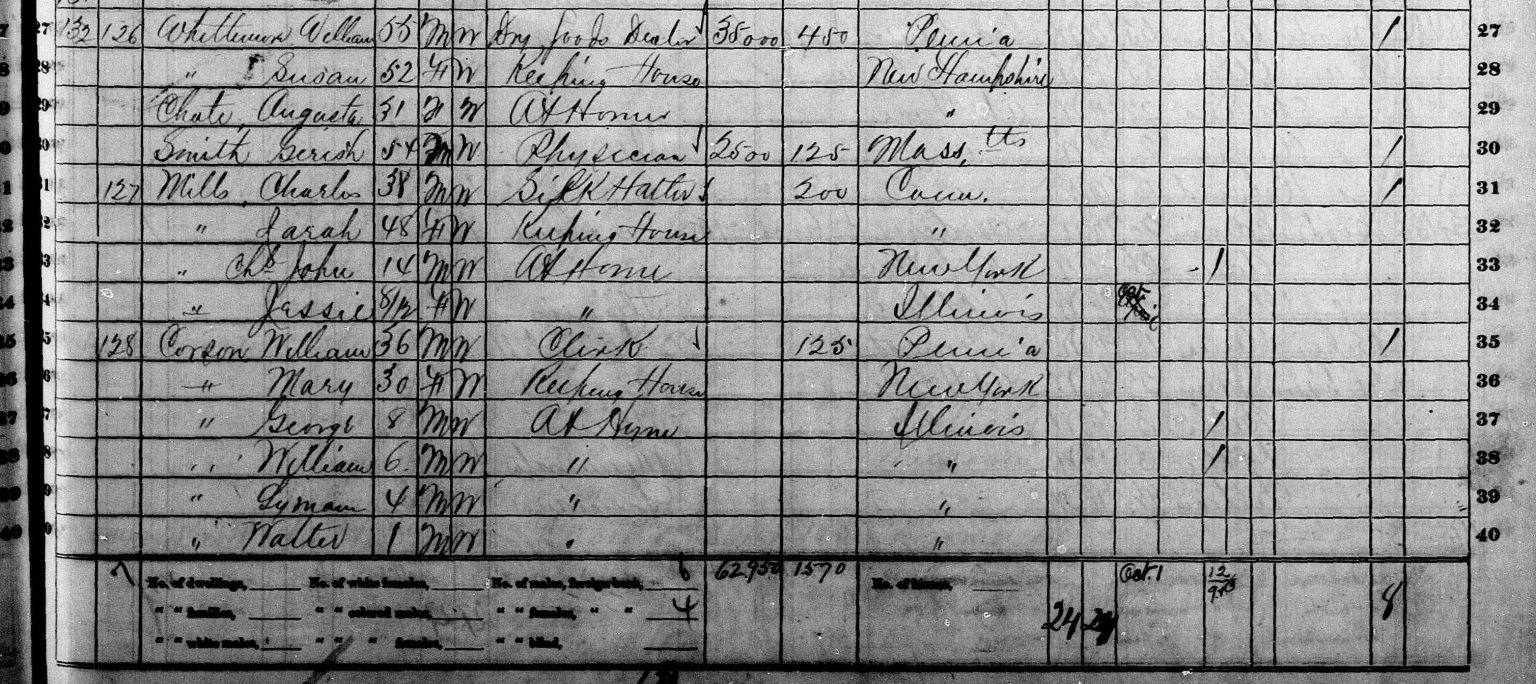 27 132 126 Whittemore William 55 M W Dry Goods Dealer 35000 450 Penn'a / 27
28 " Susan 52 F W Keeping House New Hampshire 28
29 Chate, Augusta 31 F W At Home " 29
30 Smith Gerish 54 M W Physician 2500 125 Mass,tts / 30
31 127 Mills, Charles 38 M W Silk Hatter 200 Conn. / 31
32 " Sarah 48 F W Keeping House " 32
33 " John 14 M W At Home New York / 33
34 " Jessie 8/12 F W " Illinois Oct 34
35 128 Corson William 36 M W Clerk 125 Penn'a / 35
36 " Mary 30 F W Keeping House New York 36
37 " George 8 M W At Home Illinois / 37
38 " William 6 M W " " / 38
39 " Lyman 4 M W " " 39
40 " Walter 1 M W " " 40
7 No. of dwellings, No. of white females, No. of males, foreign born, 6 62950 1570 No. of Oct. 1 12
" " families, " " colored males, " " females, " " 4 24 24 8
" " white males, " " " females, " " blind,